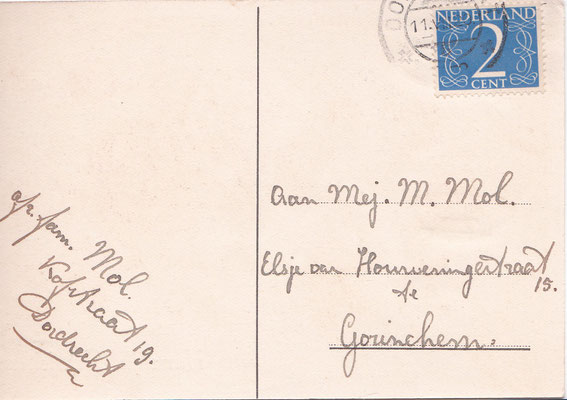 11.V
NEDERLAND
2
CENT
Aan Mej. M. Mol.
Elsje van Houweningenstraat
15.
te
Gorinchem.
afz. fam. Mol.
Kofstraat 19.
Dordrecht